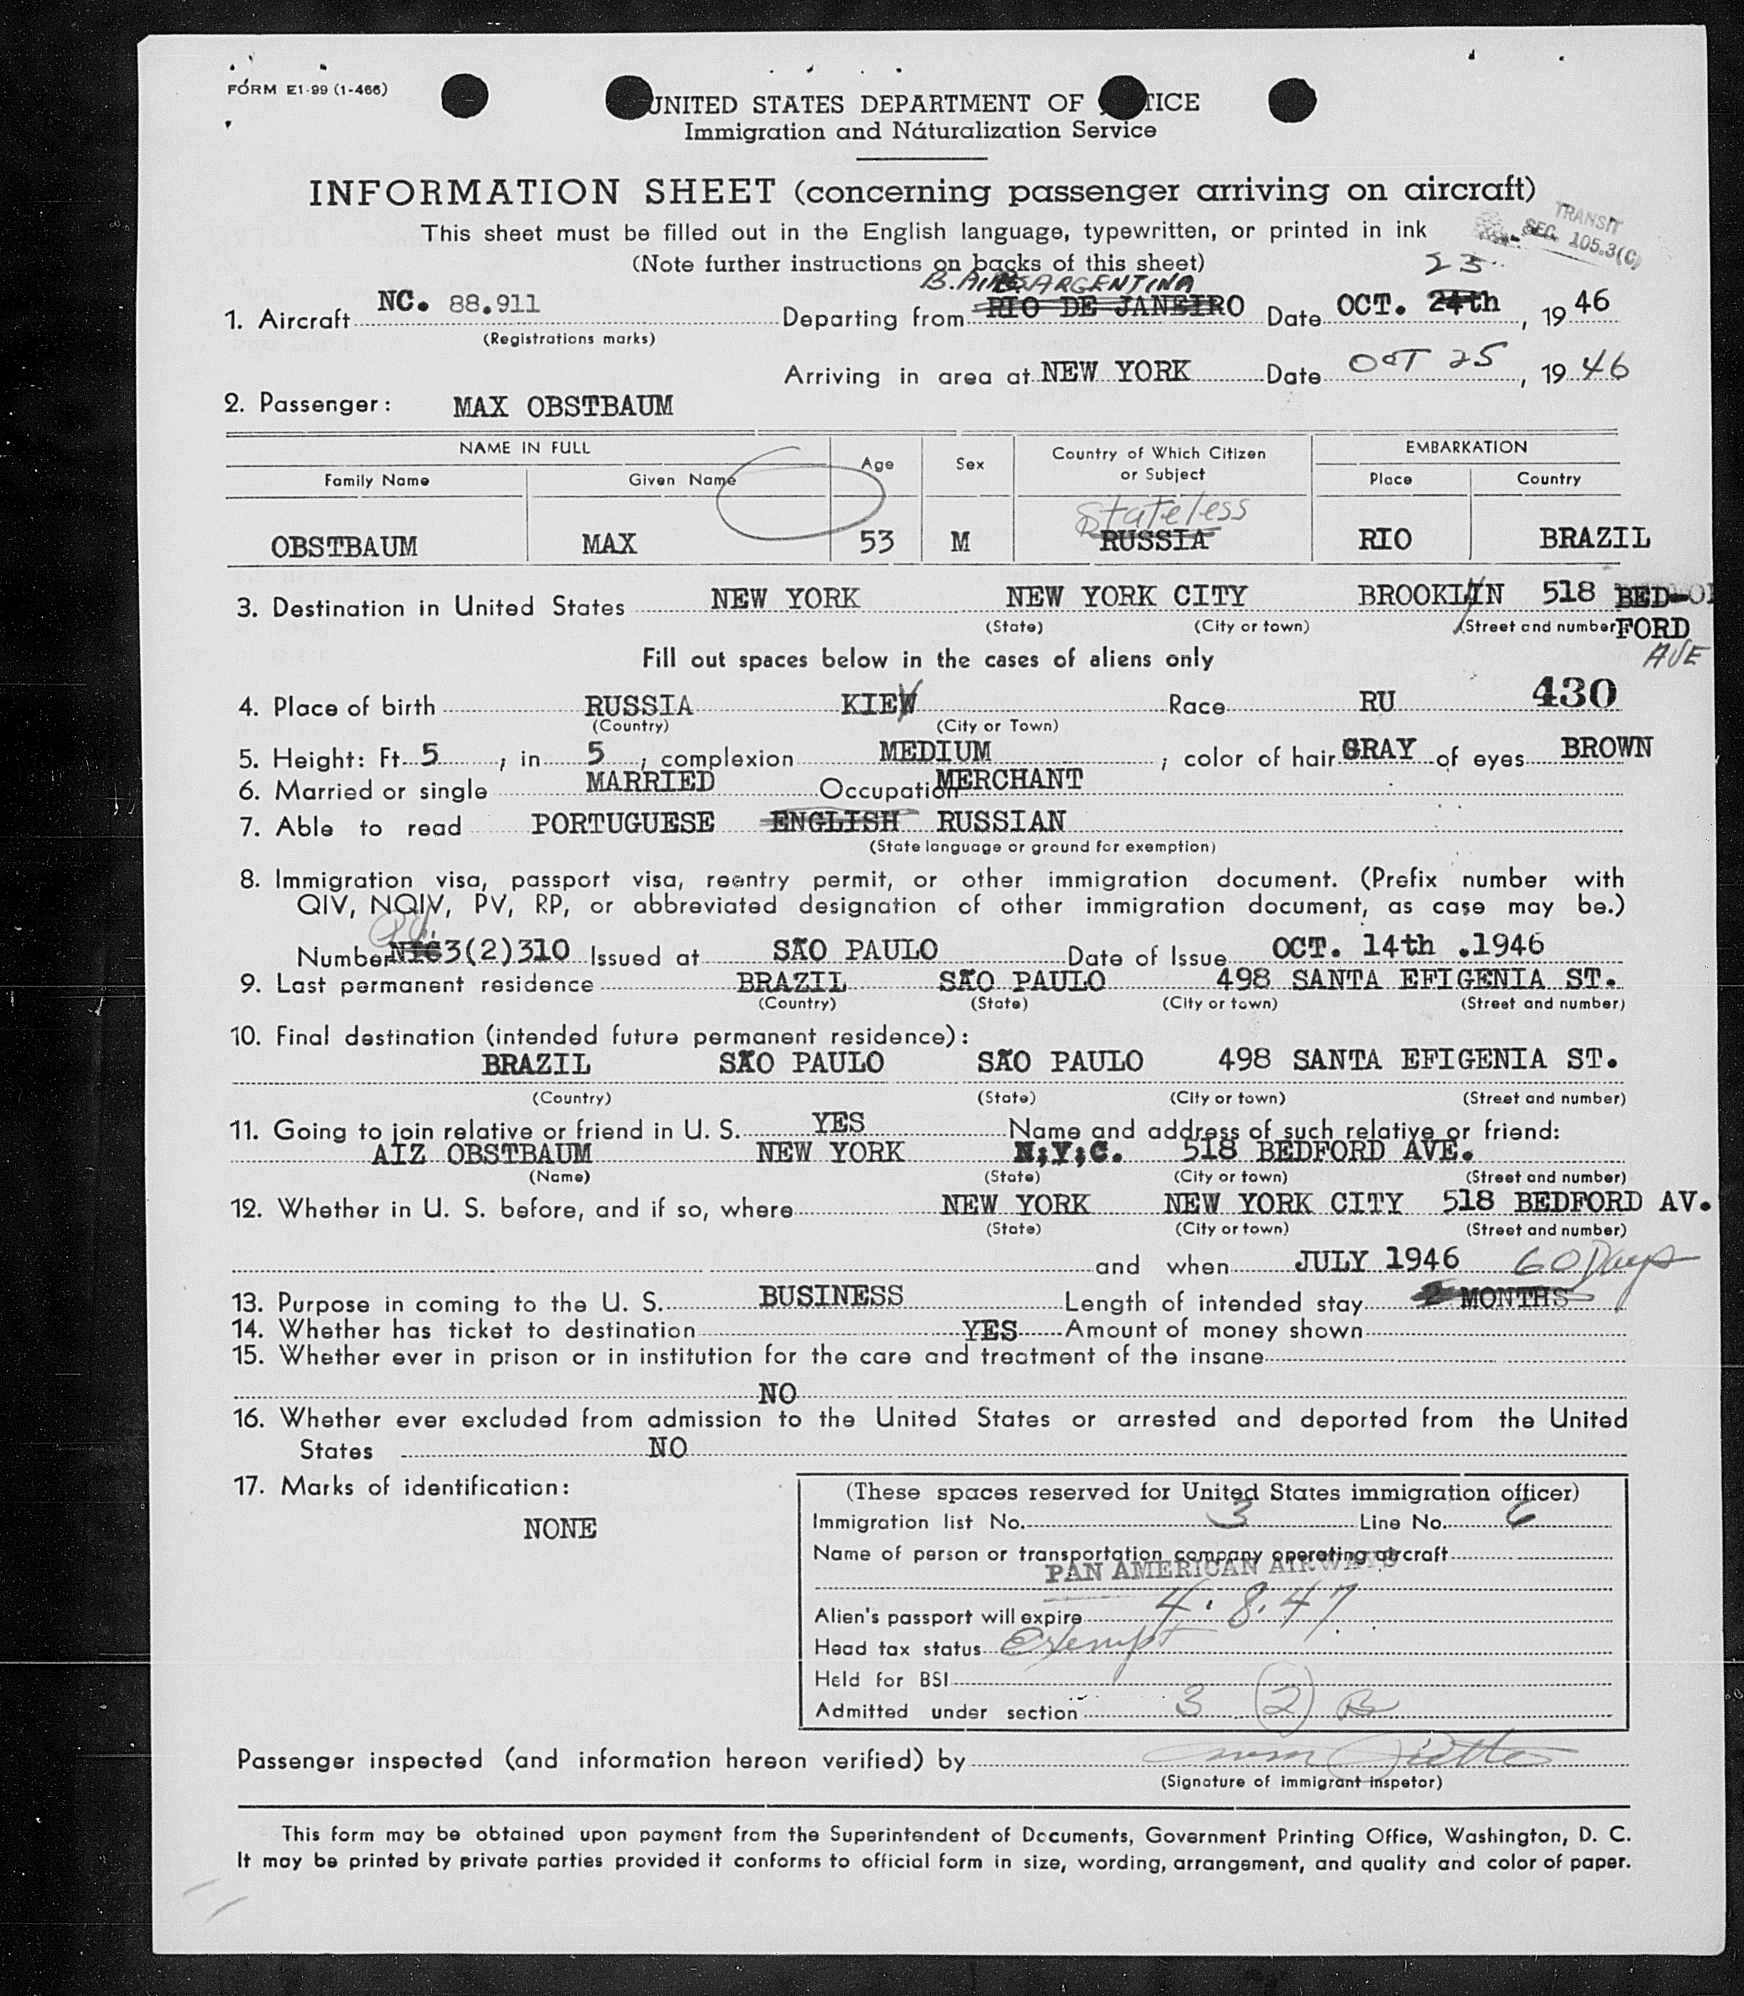 FORM E1-99 (1-466)
UNITED STATES DEPARTMENT OF JUSTICE
Immigration and Naturalization Service
INFORMATION SHEET (concerning passenger arriving on aircraft)
TRANSIT
SEC. 105.3(C)
This sheet must be filled out in the English language, typewritten, or printed in ink
(Note further instructions on backs of this sheet)
B. AIRES ARGENTINA 23
1. Aircraft NC. 88.911 Departing from RIO DE JANEIRO Date OCT. 24th, 1946
(Registrations marks)
Arriving in area at NEW YORK Date OCT 25, 1946
2. Passenger: MAX OBSTBAUM
NAME IN FULL Age Sex Country of Which Citizen or Subject EMBARKATION
Family Name Given Name Place Country
Stateless
OBSTBAUM MAX 53 M RUSSIA RIO BRAZIL
3. Destination in United States NEW YORK NEW YORK CITY BROOKLYN 518 BED-
(State) (City or town) (Street and number) FORD
AVE
Fill out spaces below in the cases of aliens only
4. Place of birth RUSSIA KIEV Race RU 430
(Country) (City or Town)
5. Height: Ft. 5, in 5, complexion MEDIUM; color of hair GRAY of eyes BROWN
6. Married or single MARRIED Occupation MERCHANT
7. Able to read PORTUGUESE ENGLISH RUSSIAN
(State language or ground for exemption)
8. Immigration visa, passport visa, reentry permit, or other immigration document. (Prefix number with
QIV, NQIV, PV, RP, or abbreviated designation of other immigration document, as case may be.)
Number 3(2)310 Issued at SÃO PAULO Date of Issue OCT. 14th .1946
9. Last permanent residence BRAZIL SÃO PAULO 498 SANTA EFIGENIA ST.
(Country) (State) (City or town) (Street and number)
10. Final destination (intended future permanent residence):
BRAZIL SÃO PAULO SÃO PAULO 498 SANTA EFIGENIA ST.
(Country) (State) (City or town) (Street and number)
11. Going to join relative or friend in U. S. YES Name and address of such relative or friend:
AIZ OBSTBAUM NEW YORK N;Y;C. 518 BEDFORD AVE.
(Name) (State) (City or town) (Street and number)
12. Whether in U. S. before, and if so, where NEW YORK NEW YORK CITY 518 BEDFORD AV.
(State) (City or town) (Street and number)
and when JULY 1946 60 Days
13. Purpose in coming to the U. S. BUSINESS Length of intended stay 2 MONTHS
14. Whether has ticket to destination YES Amount of money shown
15. Whether ever in prison or in institution for the care and treatment of the insane
NO
16. Whether ever excluded from admission to the United States or arrested and deported from the United
States NO
17. Marks of identification:
NONE
(These spaces reserved for United States immigration officer)
Immigration list No. 3 Line No. 6
Name of person or transportation company operating aircraft
PAN AMERICAN AIRWAYS
Alien's passport will expire 4.8.47
Head tax status Exempt
Held for BSI
Admitted under section 3 (2) B
Passenger inspected (and information hereon verified) by
(Signature of immigrant inspetor)
This form may be obtained upon payment from the Superintendent of Documents, Government Printing Office, Washington, D. C.
It may be printed by private parties provided it conforms to official form in size, wording, arrangement, and quality and color of paper.